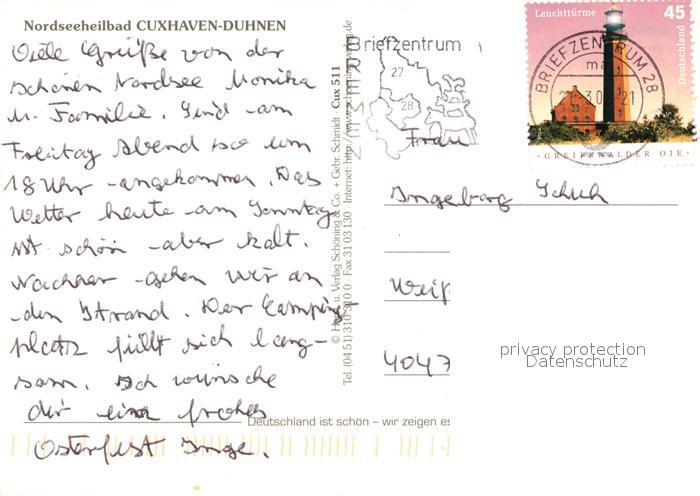 Nordseeheilbad CUXHAVEN-DUHNEN
Viele Grüße von der
schönen Nordsee Monika
u. Familie. Sind am
Freitag Abend so um
18 Uhr angekommen. Das
Wetter heute am Sonntag
ist schön aber kalt.
Nachher gehen wir an
den Strand. Der Camping-
platz füllt sich lang-
sam. Ich wünsche
dir ein frohes
Osterfest Inge.
Deutschland ist schön – wir zeigen es
Tel. (04 51) 310 310 0 · Fax 31 03 130
Cux 511
Briefzentrum
27
28
BRIEFZENTRUM 28
Leuchttürme
45
Deutschland
GREIFSWALDER OIE
Frau
Ingeborg Schuh
4047
privacy protection
Datenschutz